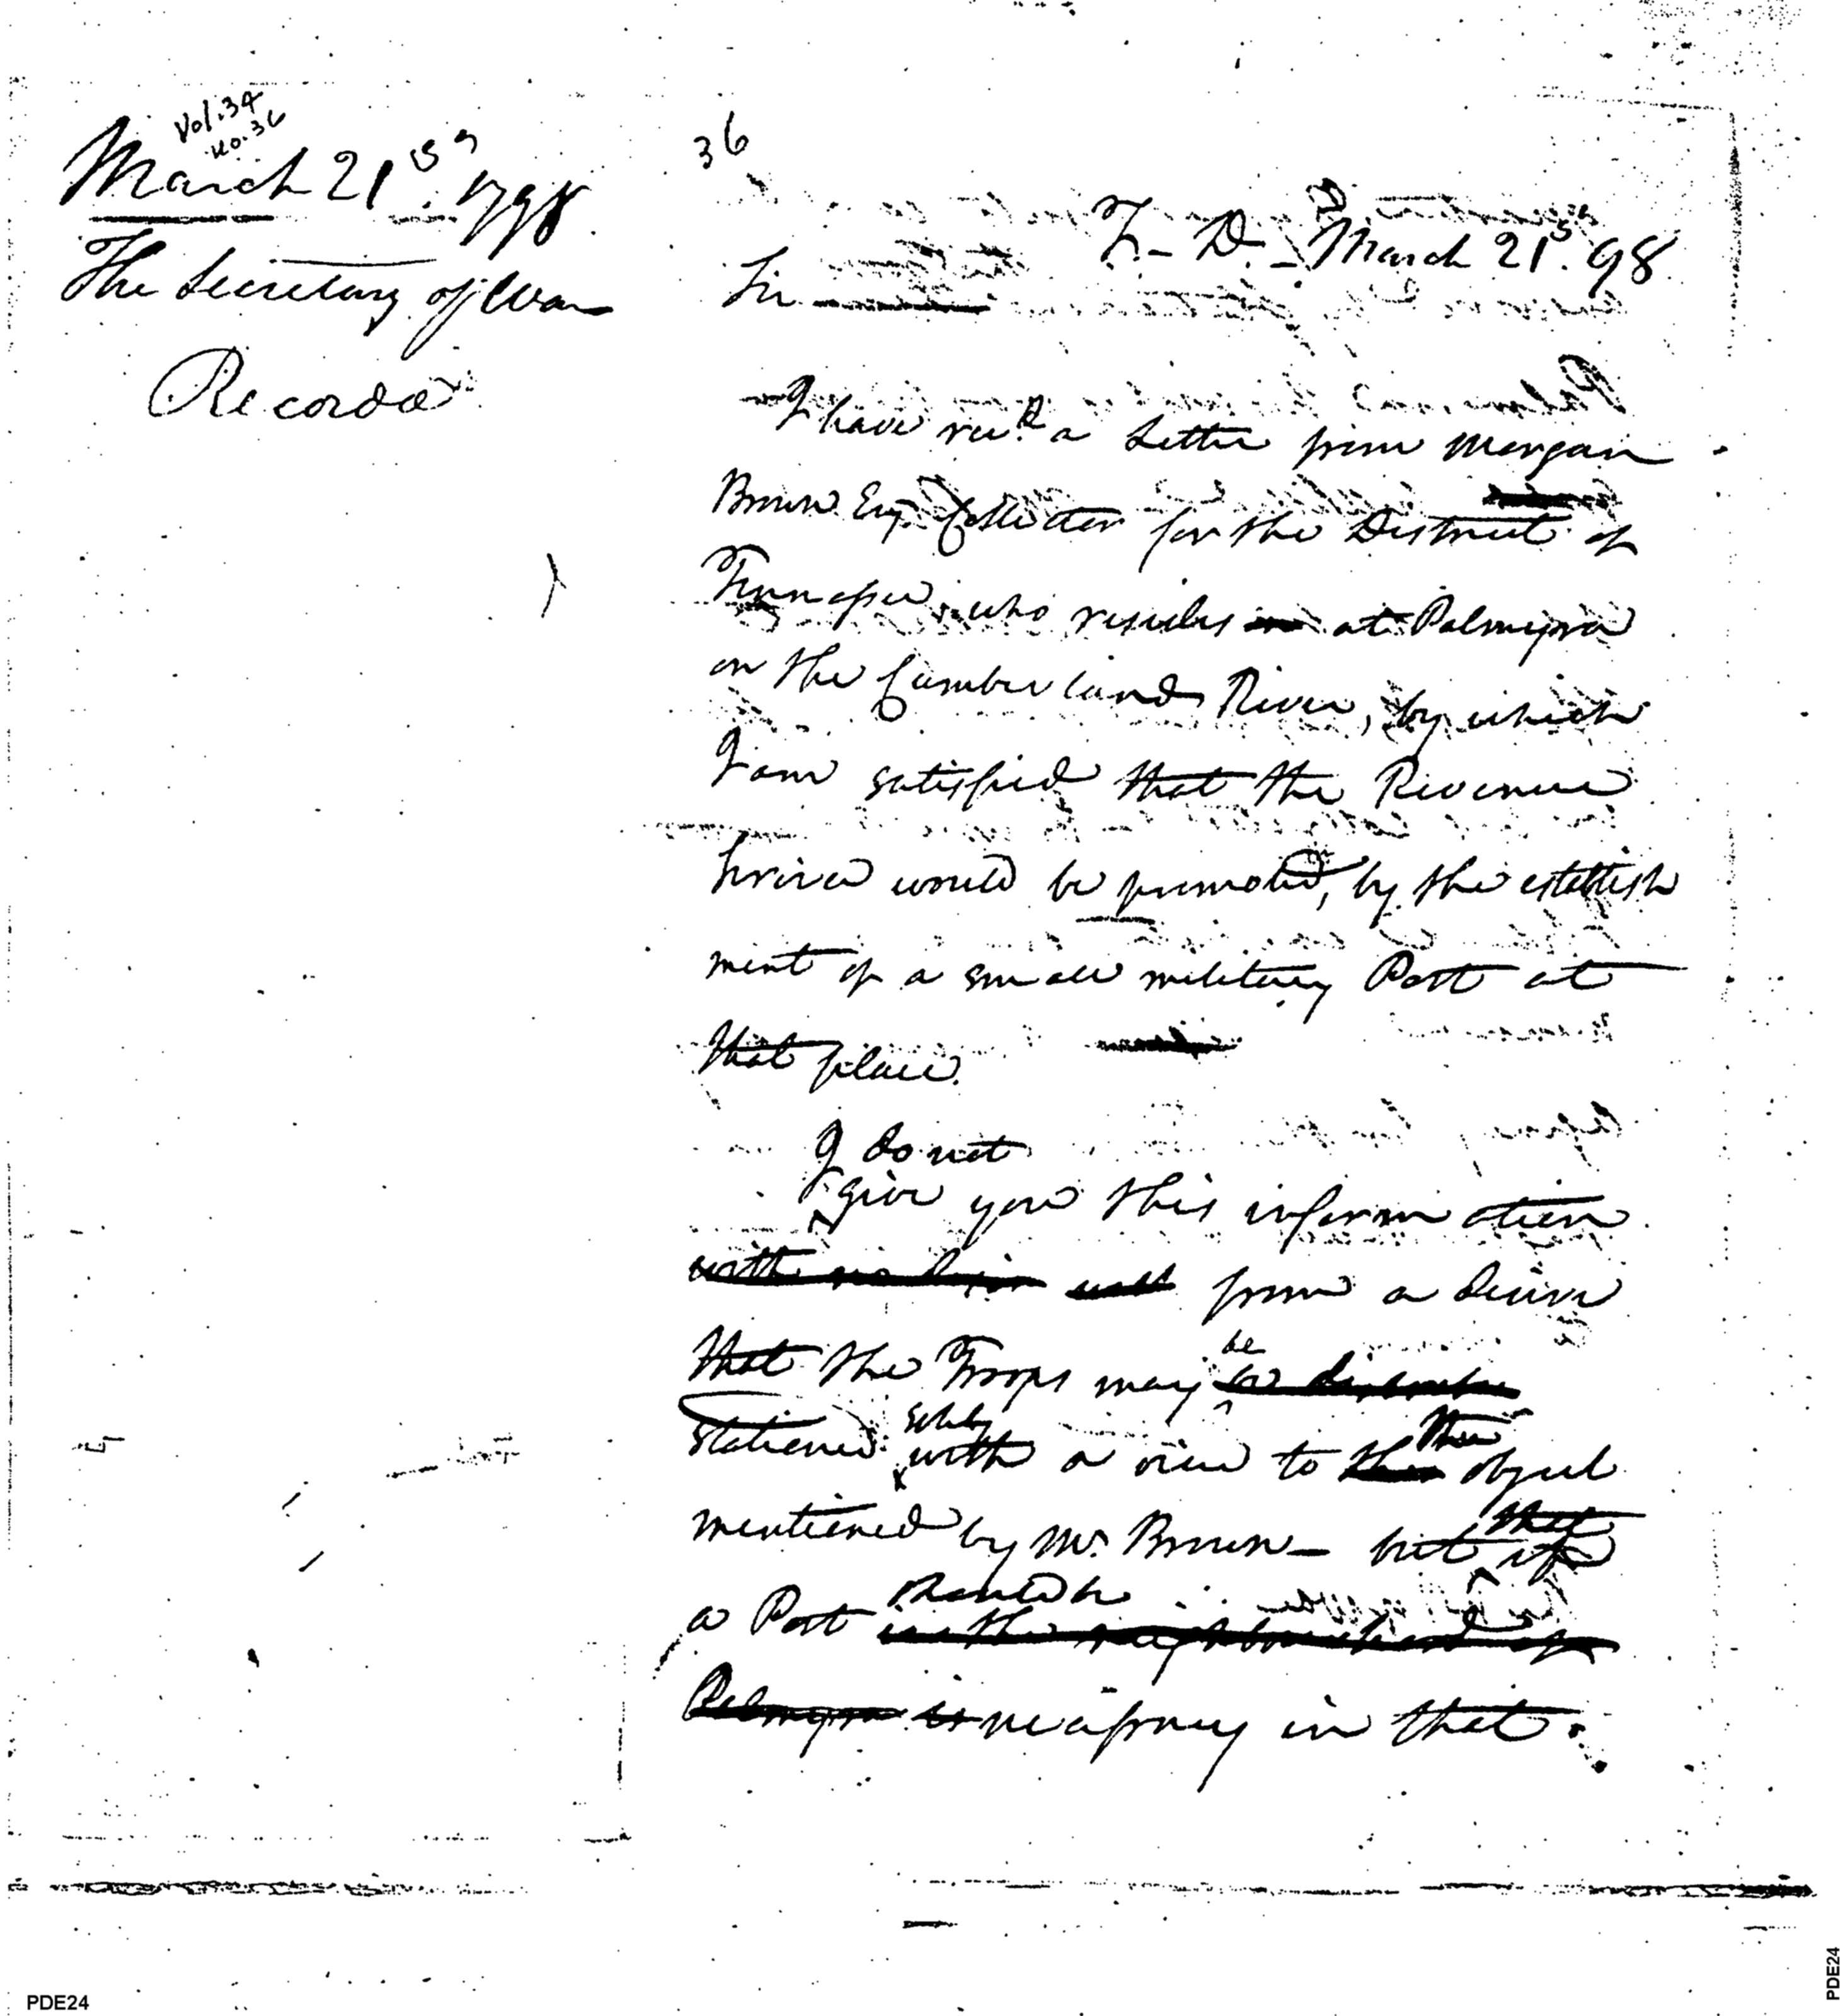 Vol. 34
No. 36
March 21st. 1798
The Secretary of War
Recorded
36
T. D. March 21st. 98
Sir
I have recd. a Letter from Morgan
Brown Esqr. Collector for the District of
Tennessee, who resides in at Palmyra
on the Cumberland River, by which
I am satisfied that the Revenue
Service would be promoted, by the establish
ment of a small military Post at
that place.
I do not
give you this information
with from a desire
be
that the Troops may be
solely
stationed with a view to the object
the
mentioned by Mr. Brown – but if
that
should be
a Post in the neighbourhood of
Palmyra is necessary in that
PDE24
PDE24